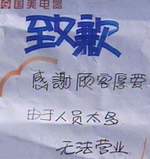 国美电器
致歉
感謝顾客厚爱
由于人员太多
无法营业